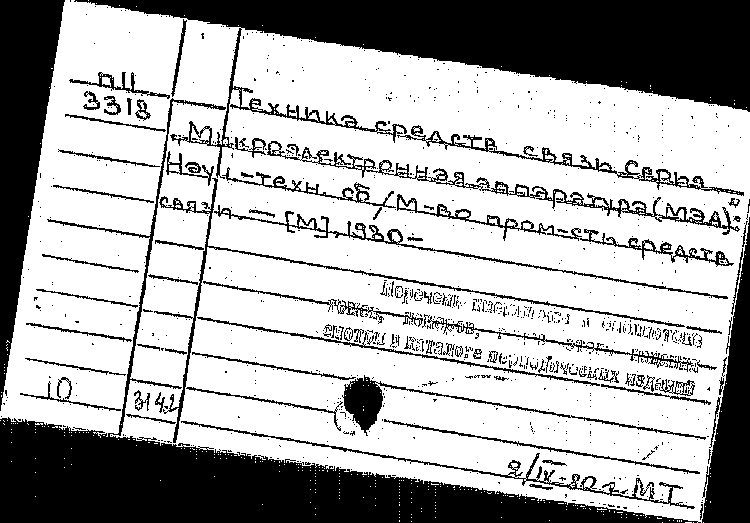 П11
3313
Техника средств связи. Серия
"Микроэлектронная аппаратура (МЭА)":
Науч.-техн. сб / М-во пром-сти средств
связи. — [М], 1980 –
Перечень имеющихся в библиотеке
томов, номеров, этого издания
смотри в каталоге периодических изданий
10
3142
2/IX-80 г. МТ